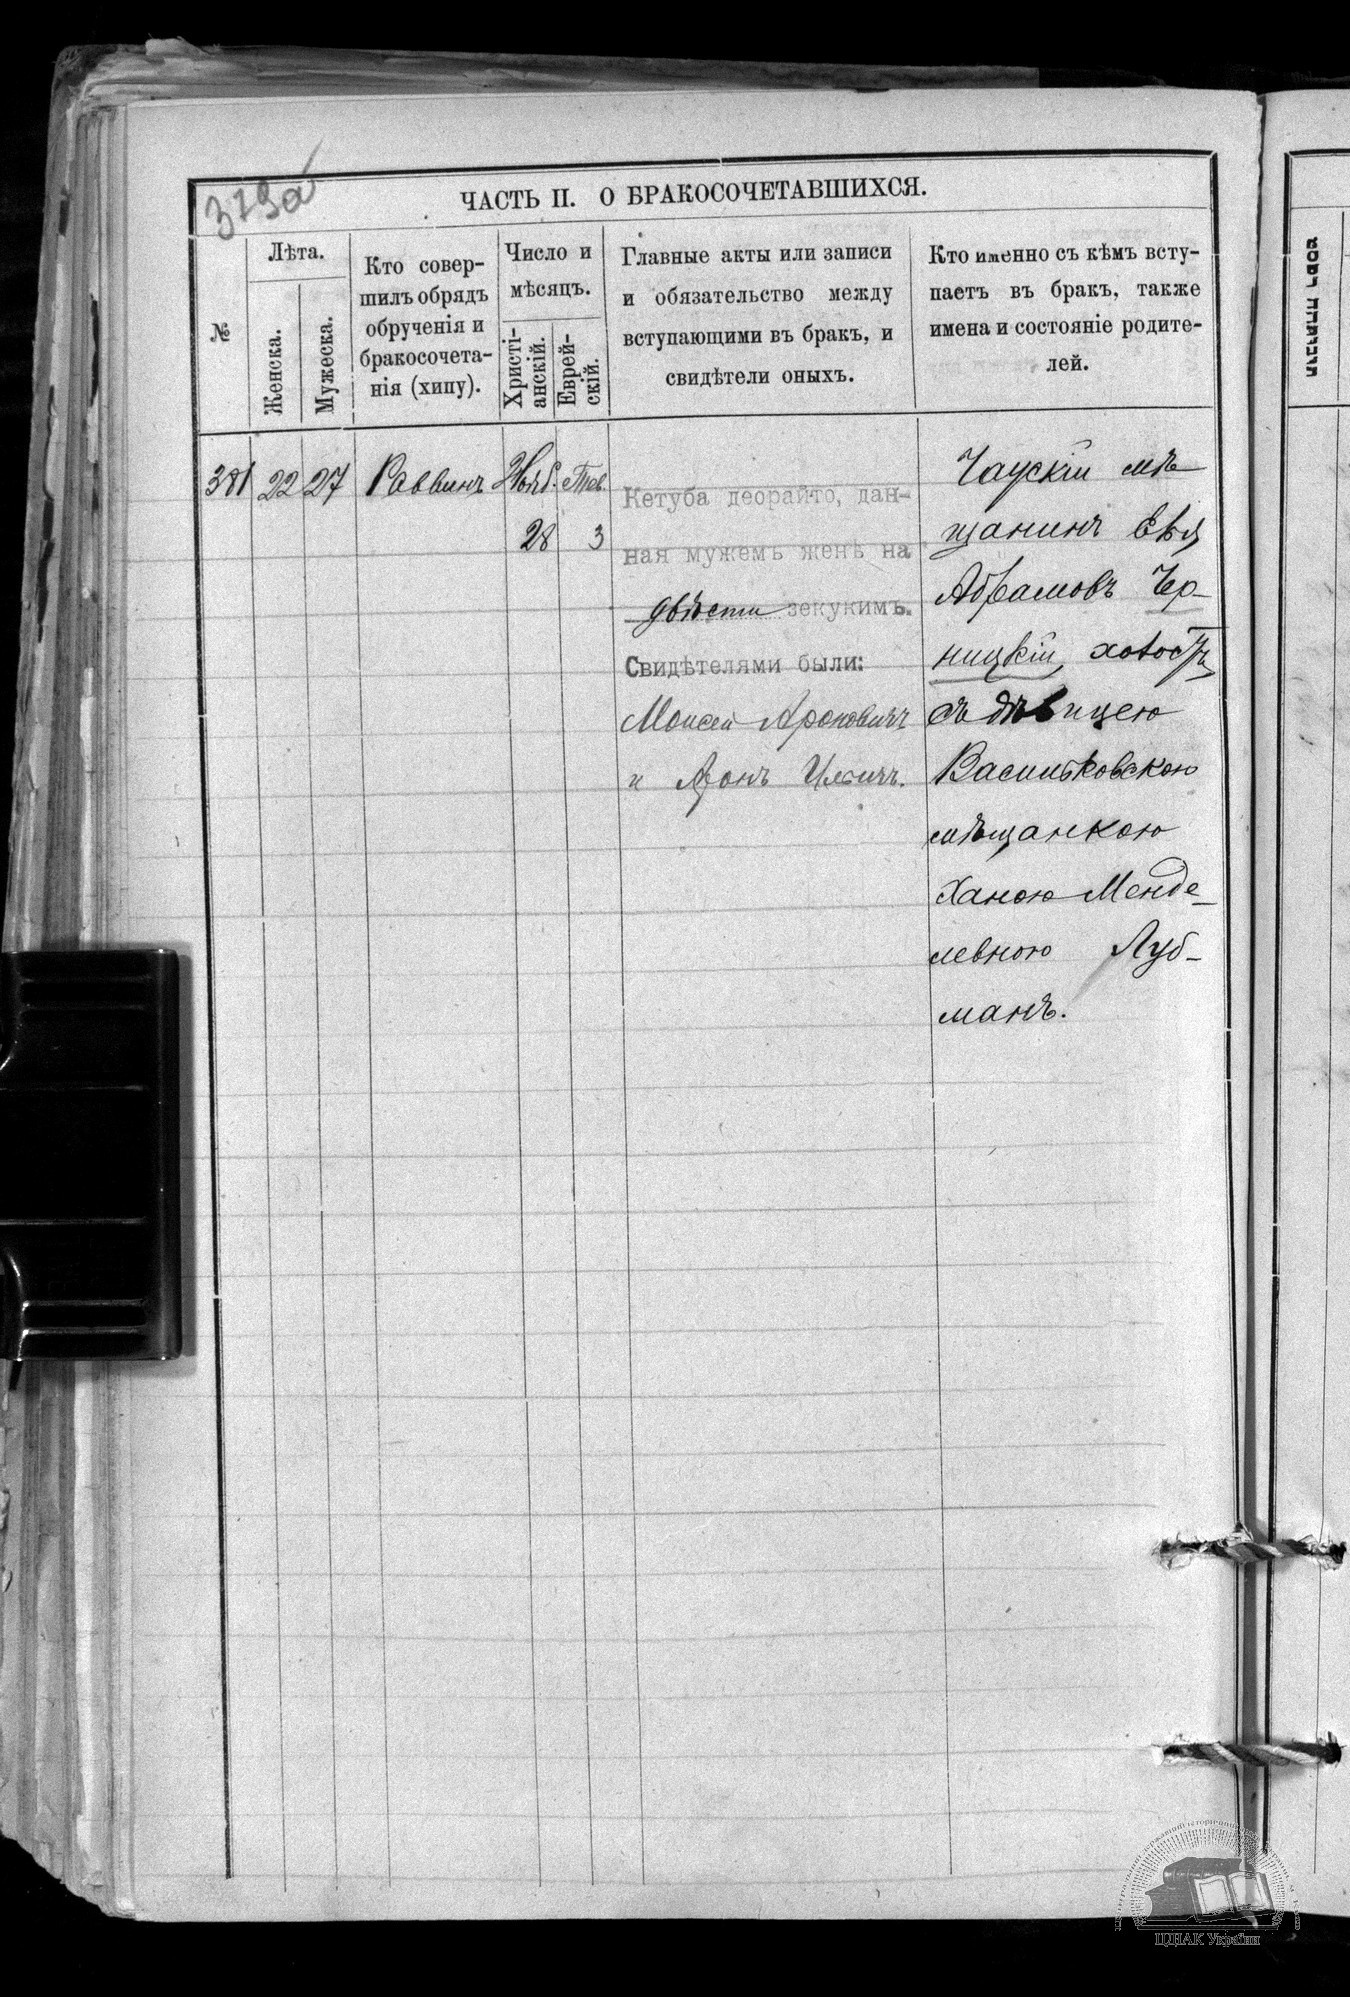 379а
ЧАСТЬ II. О БРАКОСОЧЕТАВШИХСЯ.
№
Лѣта.
Женска.
Мужеска.
Кто совер-
шилъ обрядъ
обрученія и
бракосочета-
нія (хипу).
Число и
мѣсяцъ.
Христі-
анскій.
Еврей-
скій.
Главные акты или записи
и обязательство между
вступающими въ бракъ, и
свидѣтели оныхъ.
Кто именно съ кѣмъ всту-
паетъ въ бракъ, также
имена и состояніе родите-
лей.
381 22 27 Раввинъ Нояб. Тев.
28 3
Кетуба деорайто, дан-
ная мужемъ женѣ на
двѣсти зекукимъ.
Свидѣтелями были:
Моисей Ароновичъ
и Аронъ
Чаускій мѣ
щанинъ
Абрамовъ Чер-
ницкій, холостъ,
съ дѣвицею
Васильковскою
мѣщанкою
Ханою Менде-
левною Луб-
манъ.
ЦДІАК України